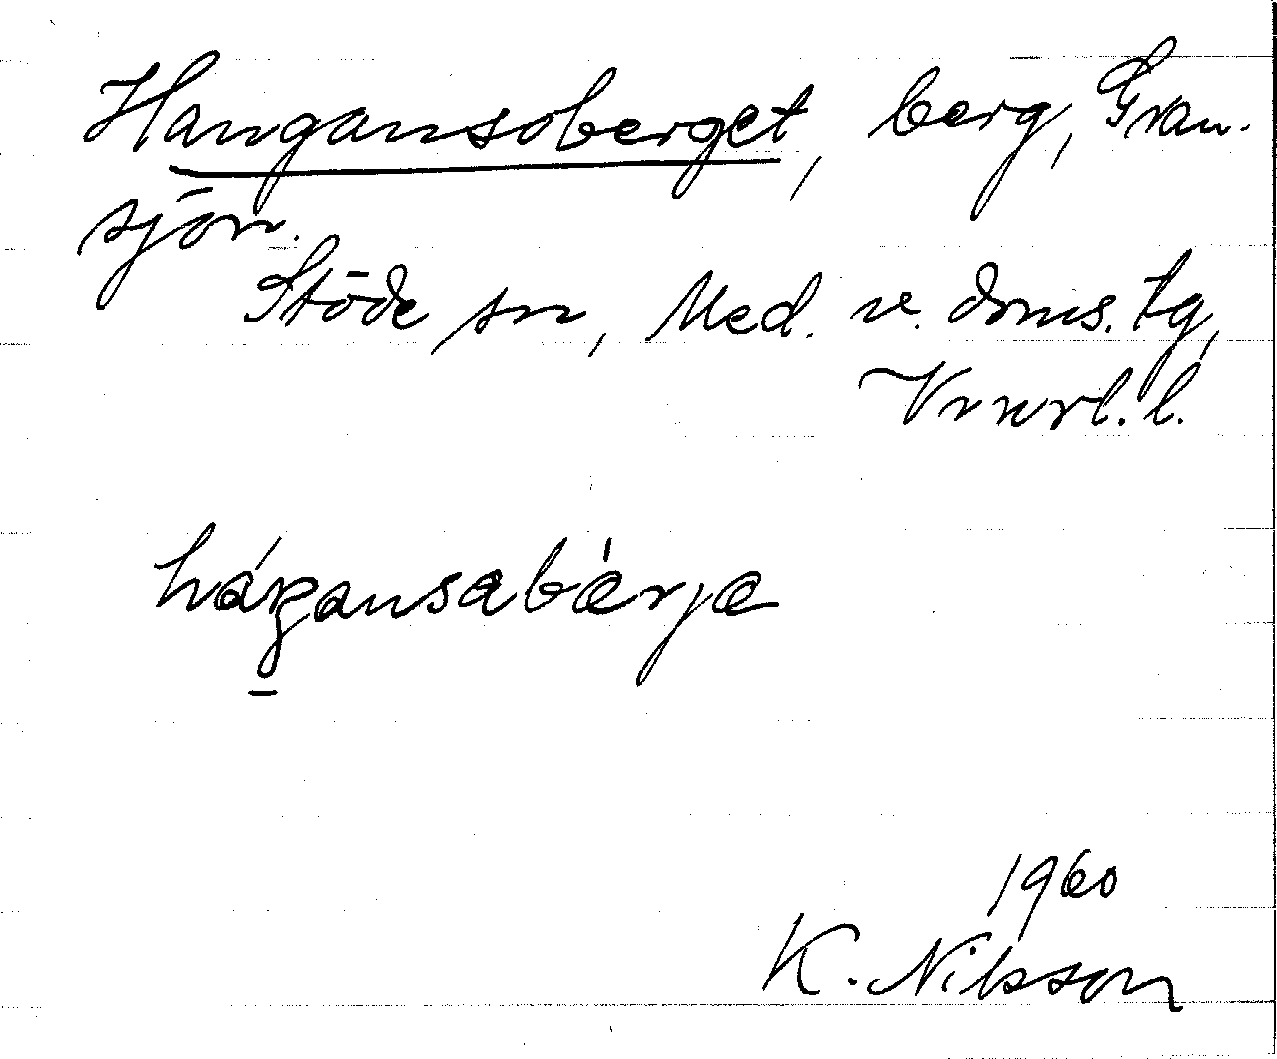 Hangansoberget, berg, Gran-
sjön.
Stöde sn, Med. v. doms. tg,
Vnorl. l.
háŋansabæ̀rjə
1960
K. Nilsson